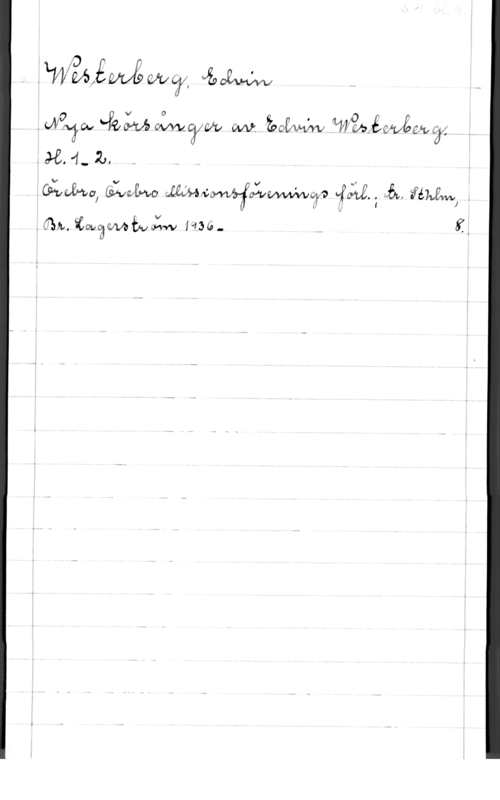 Westerberg, Edvin
Nya körsånger av Edvin Westerberg.
H. 1-2.
Örebro, Örebro Missionsförenings förl.; tr. Sthlm,
Br. Lagerström 1936- 8.